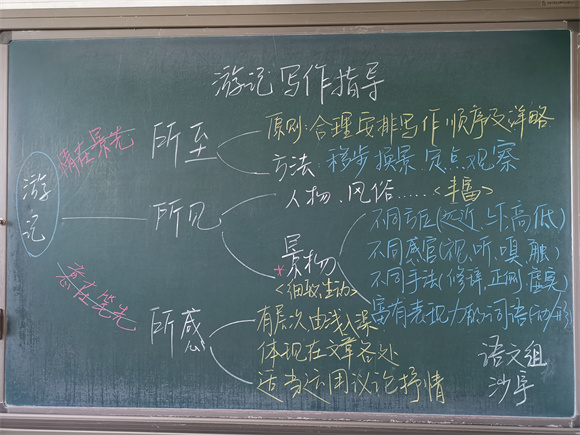 游记写作指导
情在景先
游记
意在笔先
所至
原则:合理安排写作顺序及详略
方法:移步换景 定点观察
所见
人物、风俗……<丰富>
*景物
<细致生动>
不同方位(远近、高低)
不同感官(视、听、嗅、触)
不同手法(修辞、正侧、虚实)
富有表现力的词语
所感
有层次由浅入深
体现在文章各处
适当运用议论抒情
语文组